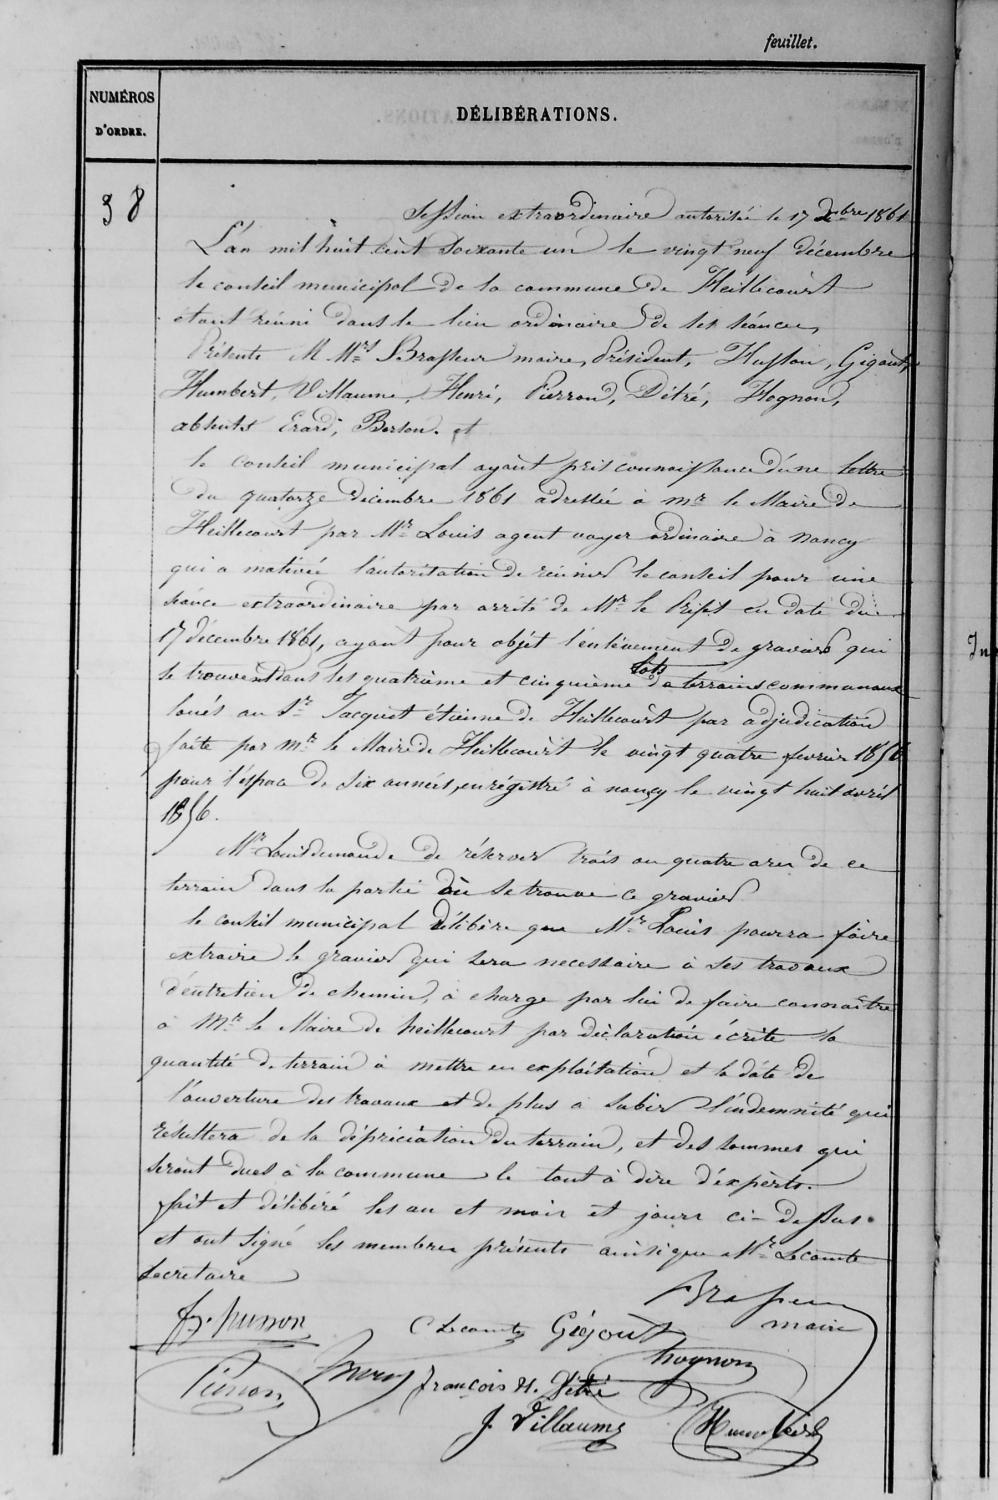 feuillet.
NUMÉROS
D'ORDRE.
DÉLIBÉRATIONS.
98
Session extraordinaire autorisée le 17 Xbre 1861
L'an mil huit cent soixante un le vingt neuf décembre
le conseil municipal de la commune de Heillecourt
étant réuni dans le lieu ordinaire de ses séances,
Présents M Mrs Brasseur maire, Président, Husson, Gigout,
Humbert, Villaume, Henri, Pierron, Détré, Hognon,
absents Erard, Berson. et
le conseil municipal ayant pris connaissance d'une lettre
du quatorze décembre 1861 adressée à mr le Maire de
Heillecourt par Mr Louis agent voyer ordinaire à Nancy
qui a motivée l'autorisation de réunir le conseil pour une
séance extraordinaire par arrêté de Mr le Préft en date du
17 décembre 1861, ayant pour objet l'enlèvement de gravier qui
se trouvent dans les quatrième et cinquième lots de terrains communaux
loués au Sr Jacquet étienne de Heillecourt par adjudication
faite par mr le Maire de Heillecourt le vingt quatre fevrier 1856
pour l'espace de six années, enrégistré à nancy le vingt huit avril
1856.
Mr Louis demande de réserver trois ou quatre ares de ce
terrain dans la partie où se trouve ce gravier
le conseil municipal délibère que Mr Louis pourra faire
extraire le gravier qui sera necessaire à ses travaux
d'entretien de chemin, à charge par lui de faire connaitre
à Mr le Maire de heillecourt par déclaration écrite la
quantité de terrain à mettre en exploitation et la date de
l'ouverture des travaux et de plus à subir l'indemnité qui
résultera de la dépréciation du terrain, et des sommes qui
seront dues à la commune le tout à dire d'expèrts.
fait et délibéré les an et mois et jours ci-dessus.
et ont signé les membres présents ainsi que Mr Lecomte
secretaire
Brasseur
maire
fr. husson
C Lecomte Gigout
hognon
Pierron
henry
François H. Détré
J. Villaume
Humbert